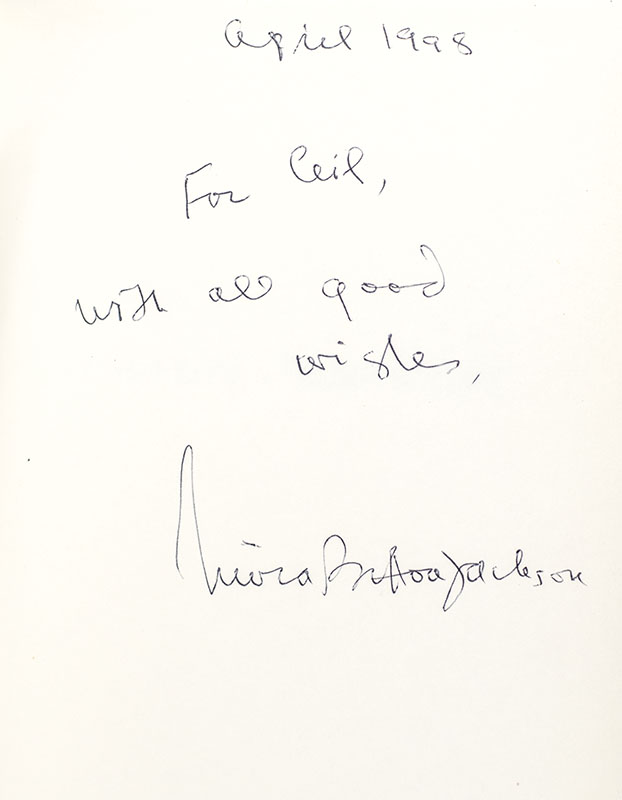 April 1998
For Ceil,
with all good
wishes,
Jackson